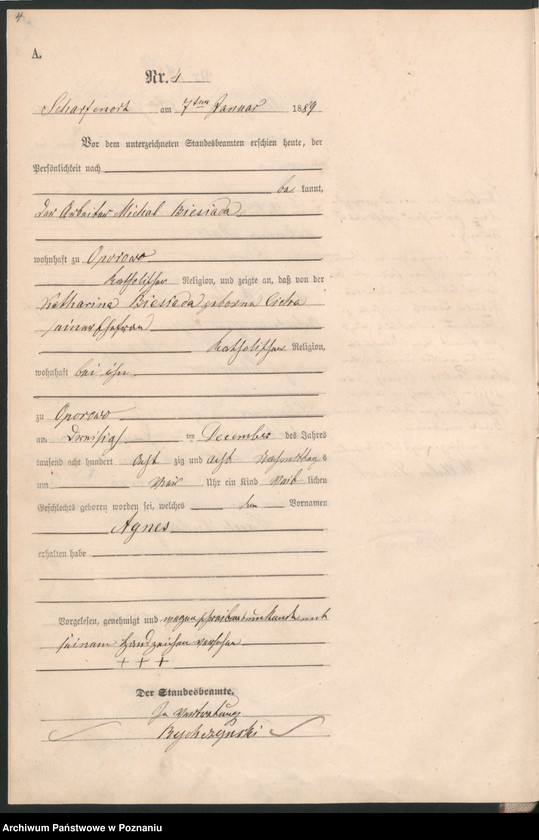 4.
A.
Nr. 4
Scharfenort am 7ten Januar 1889
Vor dem unterzeichneten Standesbeamten erschien heute, der
Persönlichkeit nach
bekannt,
der Arbeiter Michal Biesiada
wohnhaft zu Oporowo
katholischer Religion, und zeigte an, daß von der
Katharina Biesiada geborne Cicha
seiner Ehefrau
katholischer Religion,
wohnhaft bei ihm
zu Oporowo
am dreißig im December des Jahres
tausend acht hundert achtzig und acht Nachmittags
um Uhr ein Kind weiblichen
Geschlechts geboren worden sei, welches den Vornamen
Agnes
erhalten habe
Vorgelesen, genehmigt und wegen Schreibensunkunde mit
seinem Handzeichen versehen
+ + +
Der Standesbeamte.
In Vertretung
Rychczynski
Archiwum Państwowe w Poznaniu